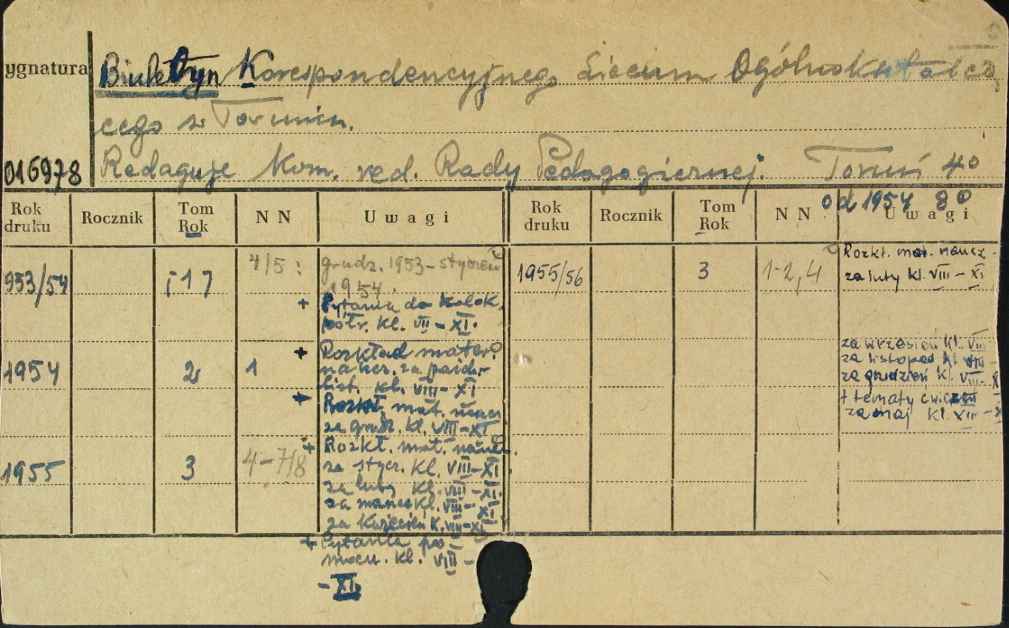 ygnatura
Biuletyn Korespondencyjnego Liceum Ogólnokształcą
cego w Toruniu.
016978 Redaguje Kom. red. Rady Pedagogicznej. Toruń 4º
od 1954 8º
Rok druku Rocznik Tom Rok NN Uwagi Rok druku Rocznik Tom Rok NN Uwagi
953/54 [1] 4/5: grudz. 1953 – styczeń
1954.
+ Pytania do kolok.
półr. kl. VII – XI.
1954 2 1 + Rozkład mater.
naucz. za paźdz.
list. kl. VIII – XI
+ Rozkł. mat. naucz
za grudz. kl. VIII – XI
1955 3 4–7/8 + Rozkł. mat. naucz.
za stycz. kl. VIII – XI
za luty kl. VIII – XI.
za marzec kl. VIII – XI
za kwiecień kl. VIII – XI
+ Pytania po
kl. VIII –
– XI.
1955/56 3 1-2,4 Rozkł. mat. naucz.
za luty kl. VIII – XI
za wrzesień kl. VIII
za listopad kl. VIII
za grudzień kl. VIII – X
+ tematy
za maj kl.